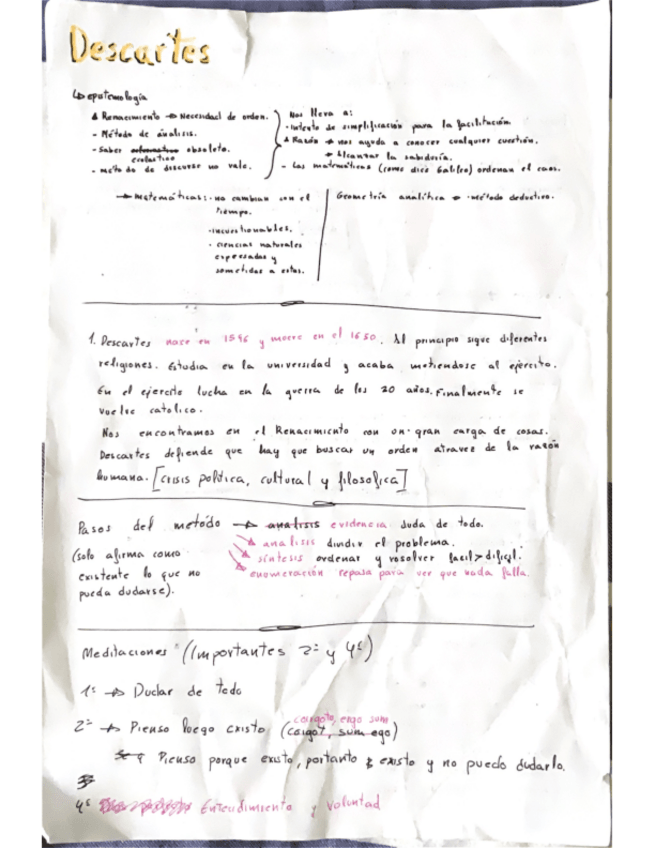 Descartes
↳ epistemología
Renacimiento → Necesidad de orden.
- Método de análisis.
- Saber obsoleto.
escolastico
- metodo de discurso no vale.
Nos lleva a:
- intento de simplificación para la facilitación
Razón → nos ayuda a conocer cualquier cuestión.
→ Alcanzar la sabiduría.
- Las matemáticas (como dice Galileo) ordenan el caos.
→ matemáticas: - no cambian con el
tiempo.
- incuestionables.
- ciencias naturales
expresadas y
sometidas a estas.
Geometría analítica → método deductivo.
1. Descartes nace en 1596 y muere en el 1650. Al principio sigue diferentes
religiones. Estudia en la universidad y acaba metiendose al ejército.
En el ejercito lucha en la guerra de los 20 años. Finalmente se
vuelve catolico.
Nos encontramos en el Renacimiento con un gran carga de cosas.
Descartes defiende que hay que buscar un orden atraves de la razón
humana. [crisis política, cultural y filosofica]
Pasos del metodo → analisis evidencia duda de todo.
(solo afirma como
existente lo que no
pueda dudarse).
analisis dividir el problema.
síntesis ordenar y resolver facil > difícil.
enumeración repasa para ver que nada falla.
Meditaciones (Importantes 2ª y 4ª)
1ª → Dudar de todo
2ª → Pienso luego existo (coigot, sum ego)
coigoto, ergo sum
Pienso porque existo, portanto existo y no puedo dudarlo.
3
4ª Entendimiento y voluntad